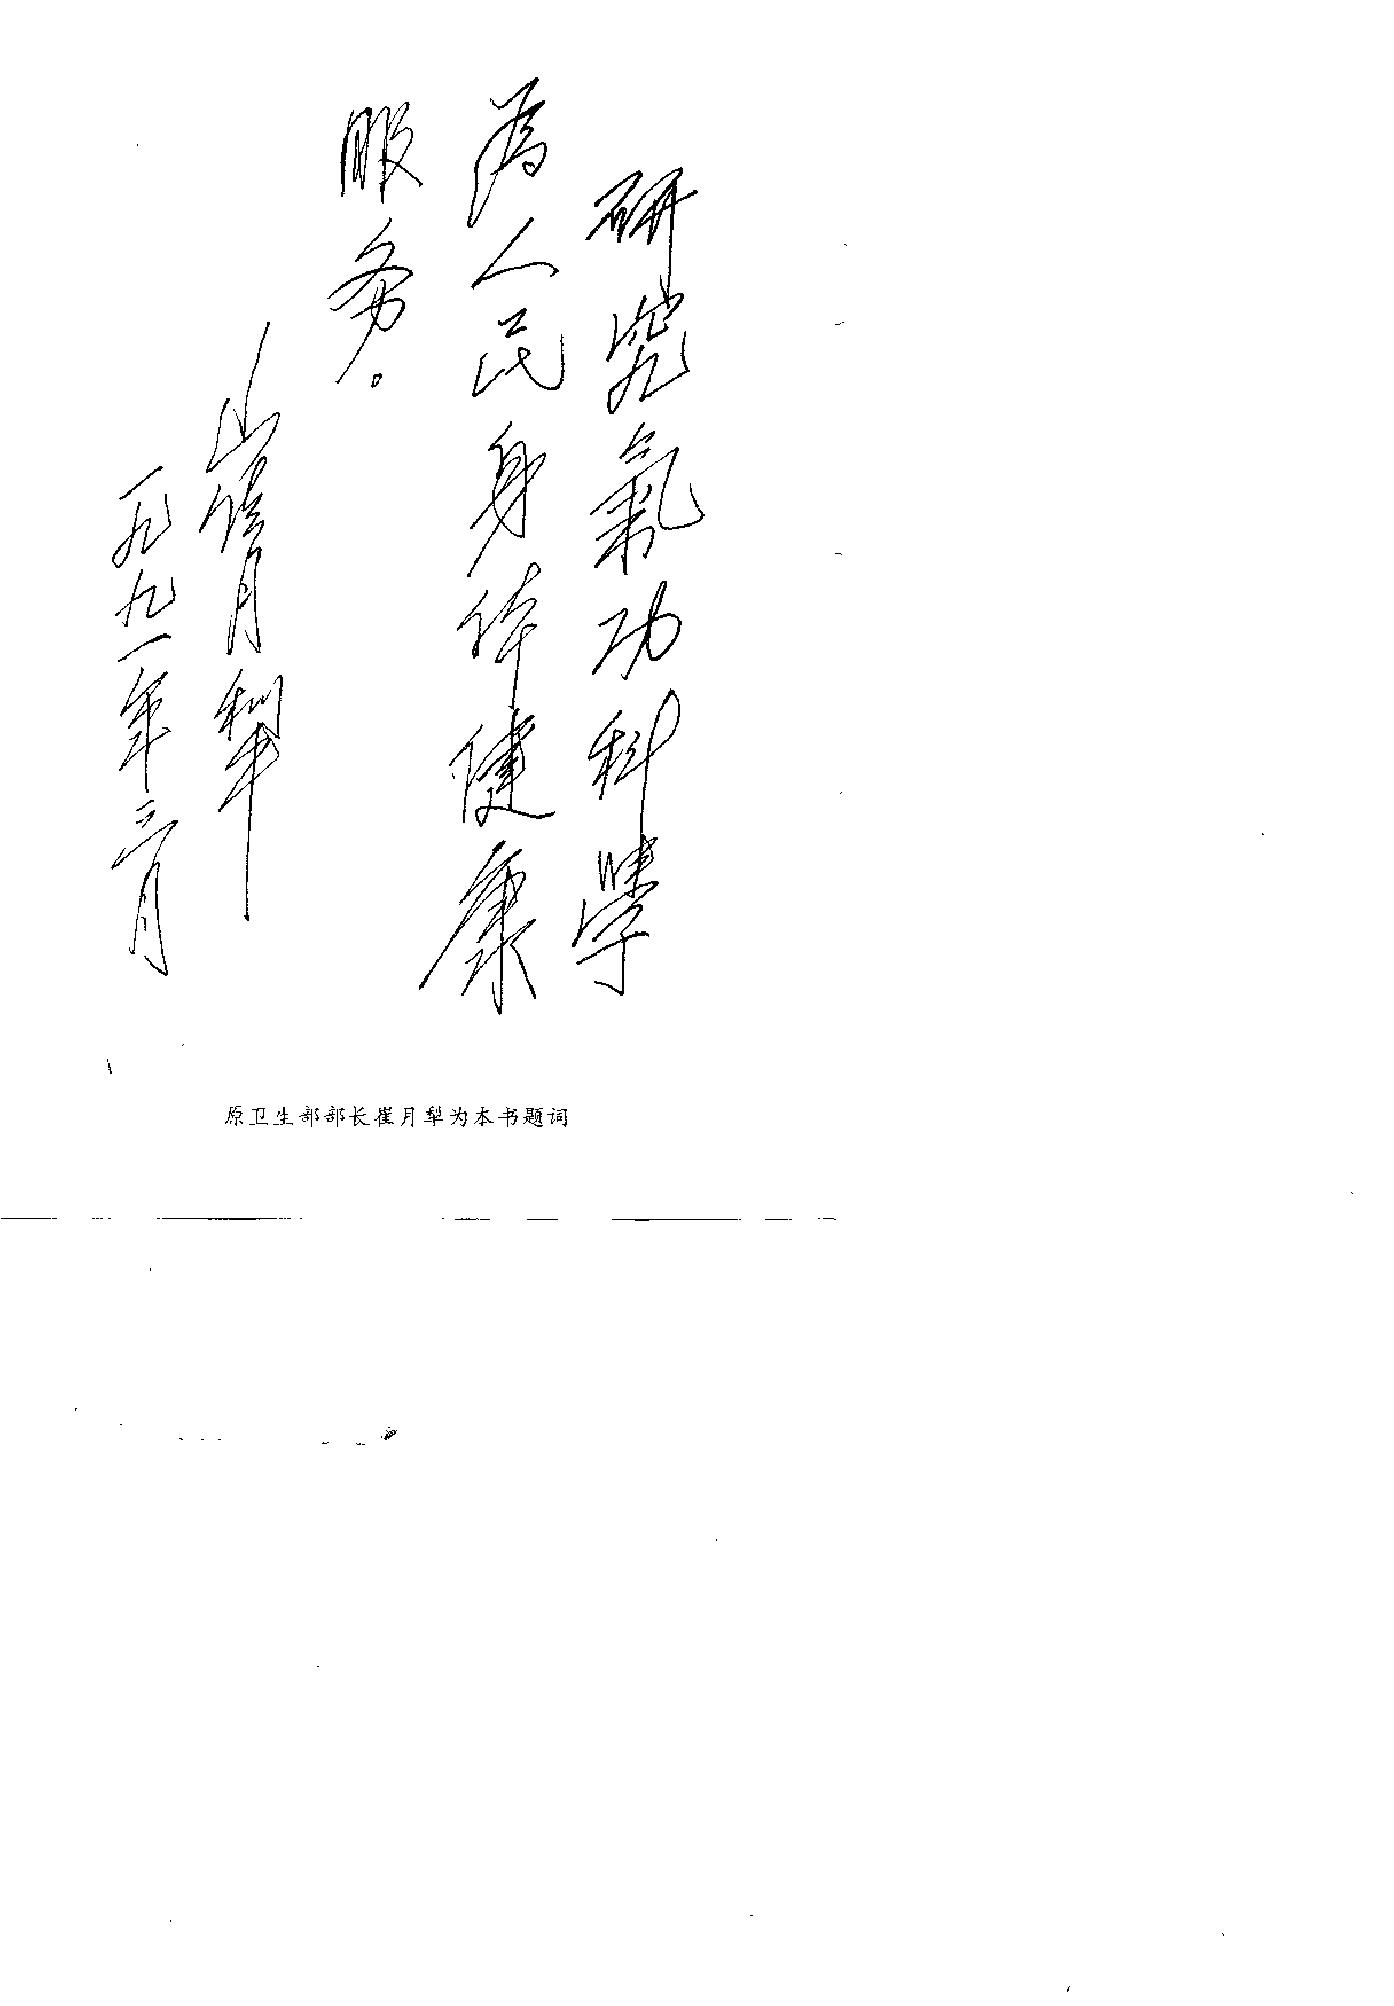 研究氣功科學
為人民身体健康
服务。
崔月犁
一九九一年三月
原卫生部部长崔月犁为本书题词